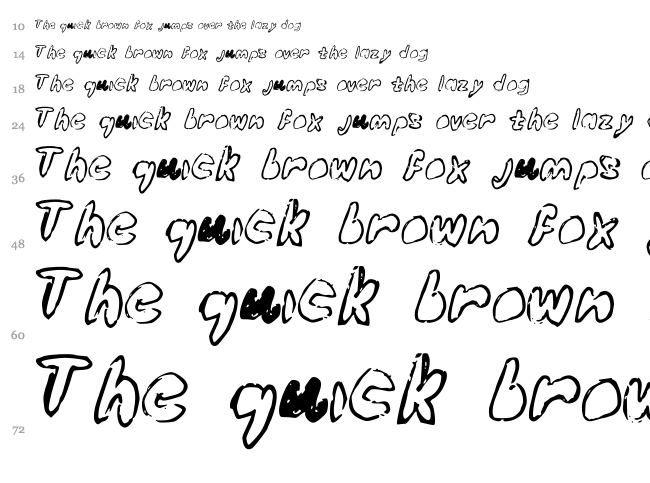 10 The quick brown fox jumps over the lazy dog
14 The quick brown fox jumps over the lazy dog
18 The quick brown fox jumps over the lazy dog
24 The quick brown fox jumps over the lazy
36 The quick brown fox jumps
48 The quick brown fox
60 The quick brown
72 The quick brow